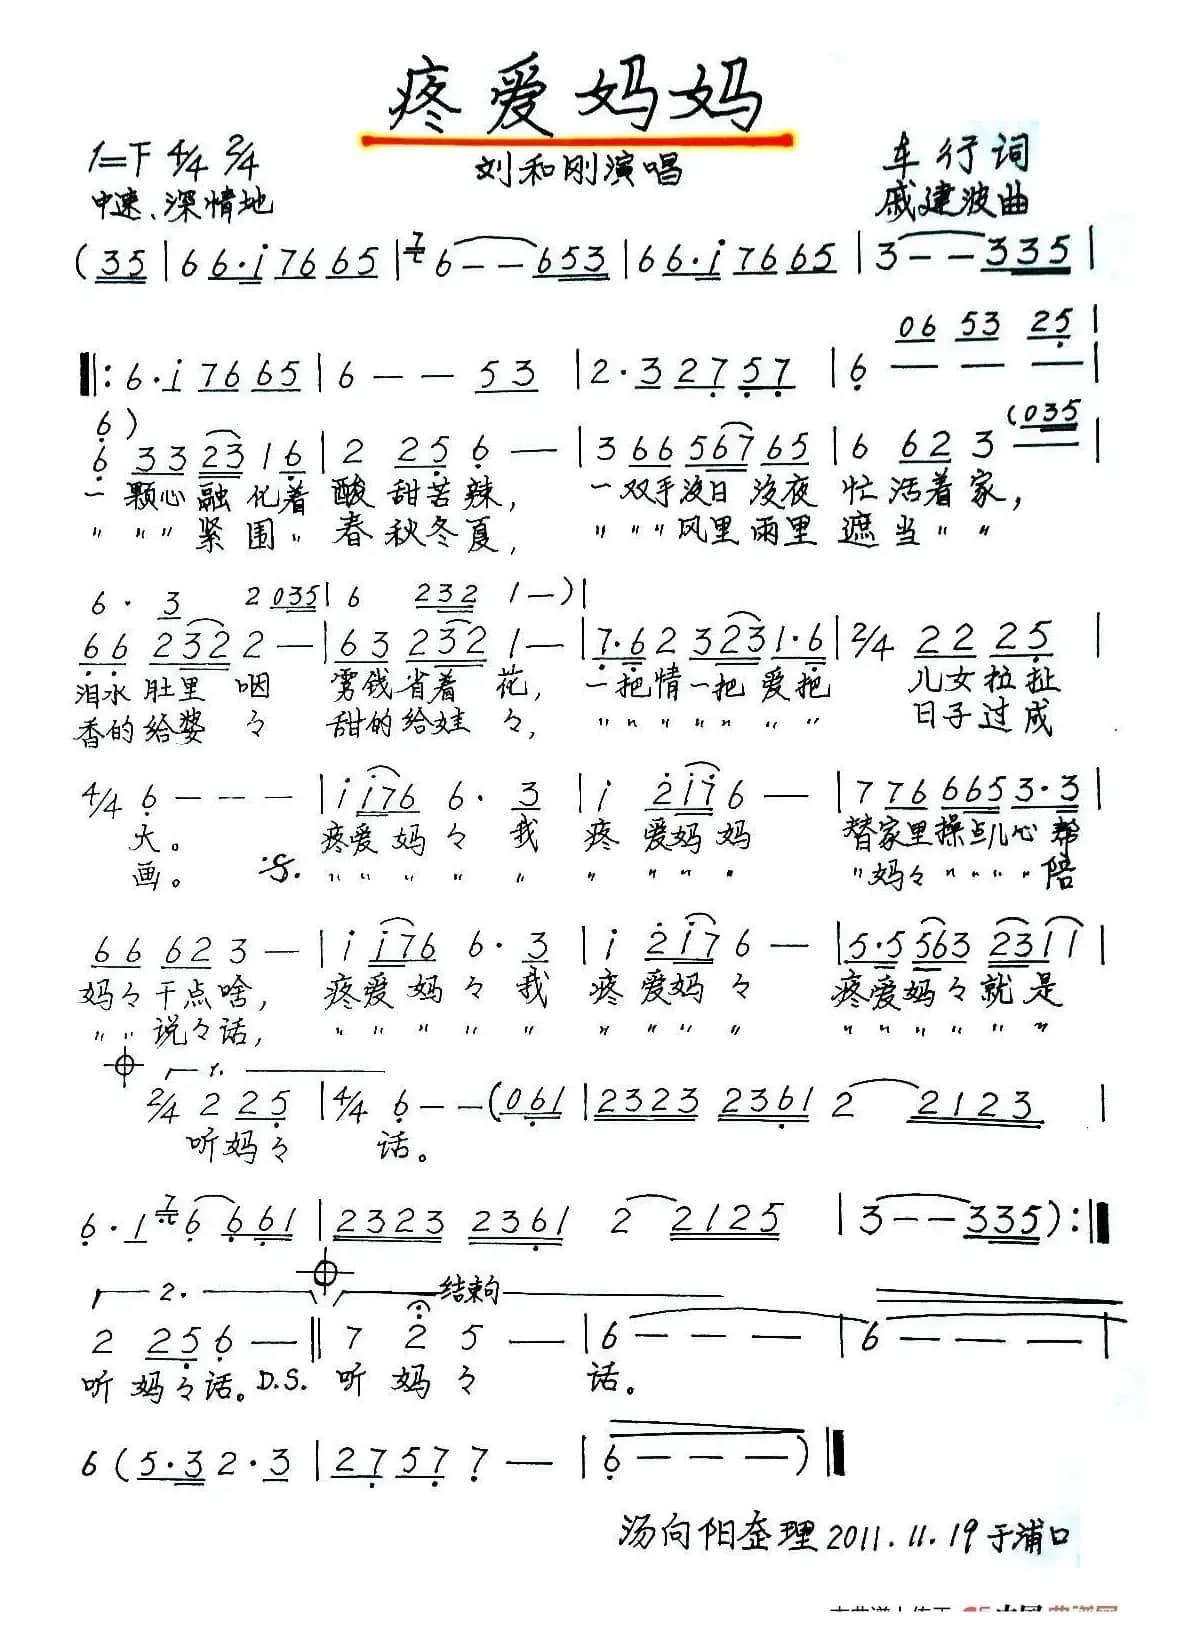 疼爱妈妈
1=F 4/4 2/4
刘和刚演唱
车行词
中速、深情地
戚建波曲
(35 | 66·i 7665 | 6 - - 653 | 66·i 7665 | 3 - - 335 |
06 53 25 |
‖: 6·i 7665 | 6 - - 53 | 2·3 2757 | 6 - - - |
6)
(035
6 33 23 1 6 | 2 25 6 - | 3 66 567 65 | 6 62 3 - |
一颗心融化着 酸甜苦辣, 一双手没日没夜忙活着家,
〃〃〃紧围〃春秋冬夏, 〃〃〃风里雨里遮当〃〃
6· 3 2 035 | 6 232 1 - ) |
66 232 2 - | 63 232 1 - | 7·62 3231·6 | 2/4 22 25 |
泪水肚里咽 雾钱省着花, 一把情一把爱把 儿女拉扯
香的给婆々 甜的给娃々, 〃〃〃〃〃〃 日子过成
4/4 6 - - - | i i76 6· 3 | i 2i7 6 - | 776 665 3·3 |
大。 疼爱妈々我 疼爱妈妈 替家里操点儿心帮
画。 𝄋 〃〃〃〃〃 〃〃〃〃 〃妈々〃〃〃〃陪
66 62 3 - | i i76 6· 3 | i 2i7 6 - | 5·5 563 23 1 1 |
妈々干点啥, 疼爱妈々我 疼爱妈々 疼爱妈々就是
〃〃说々话, 〃〃〃〃〃 〃〃〃〃 〃〃〃〃〃〃
1.
2/4 2 25 | 4/4 6 - - (061 | 2323 2361 2 2123 |
听妈々 话。
6·1 6 661 | 2323 2361 2 2125 | 3 - - 335) :‖
2. 结束句
2 25 6 - ‖ 7 2 5 - | 6 - - - | 6 - - - |
听妈々话。D.S. 听妈々 话。
6 (5·3 2·3 | 2757 7 - | 6 - - - ) ‖
汤向阳整理 2011.11.19于浦口